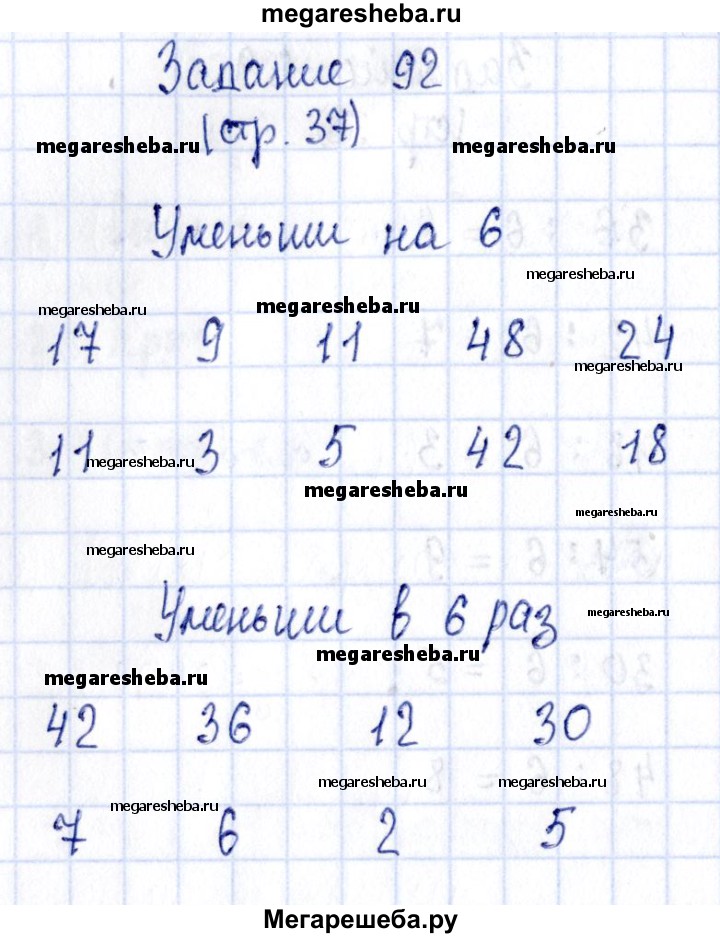 megaresheba.ru
Задание 92
(стр. 37)
megaresheba.ru megaresheba.ru
Уменьши на 6
megaresheba.ru
megaresheba.ru megaresheba.ru
17 9 11 48 24
megaresheba.ru
11 3 5 42 18
megaresheba.ru
megaresheba.ru
megaresheba.ru
megaresheba.ru
Уменьши в 6 раз
megaresheba.ru
megaresheba.ru
megaresheba.ru
42 36 12 30
megaresheba.ru megaresheba.ru
megaresheba.ru
7 6 2 5
Мегарешеба.ру